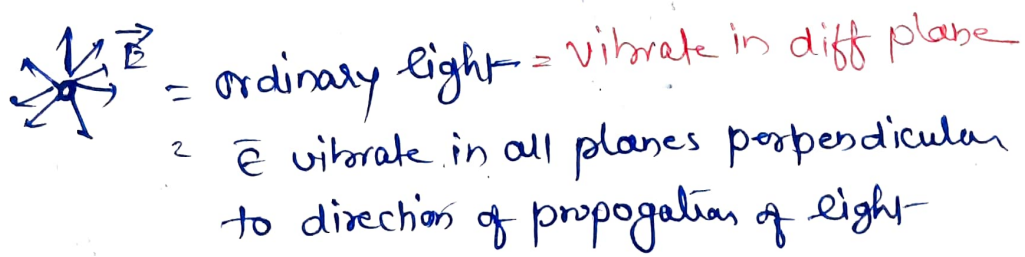 E⃗ = ordinary light = vibrate in diff plane
= ē vibrate in all planes perpendicular
to direction of propogation of light